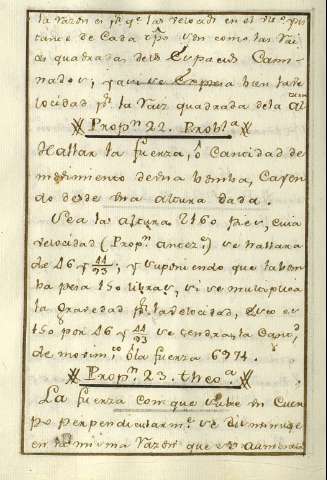 la razon es p.r q.e las velocid.s en el ult.o ins
tante de Cada tpo son como las Rai
ces quadradas de los Espacios Cami-
nados, y asi se Expresa bien la Ve
locidad p.r la raiz quadrada de la al
tura
Prop.n 22. Probl.a
Hallar la fuerza, ó Cantidad de
movimiento de una bomba, Cayen
do desde una altura dada.
Sea la altura 2160 pies, cuia
velocidad (Prop.n antez.e) se hallara
de 46 y 44/93; y suponiendo que la bom
ba pesa 150 libras, si se multiplica
la gravedad p.r la velocidad, esto es
150 por 46 y 44/93 se tendra la Cant.d
de movim.to ó la fuerza 6971.
Prop.n 23. theo.a
La fuerza con que sube un Cuer
po perpendicularm.te se disminuye
en la misma razon que se aumenta